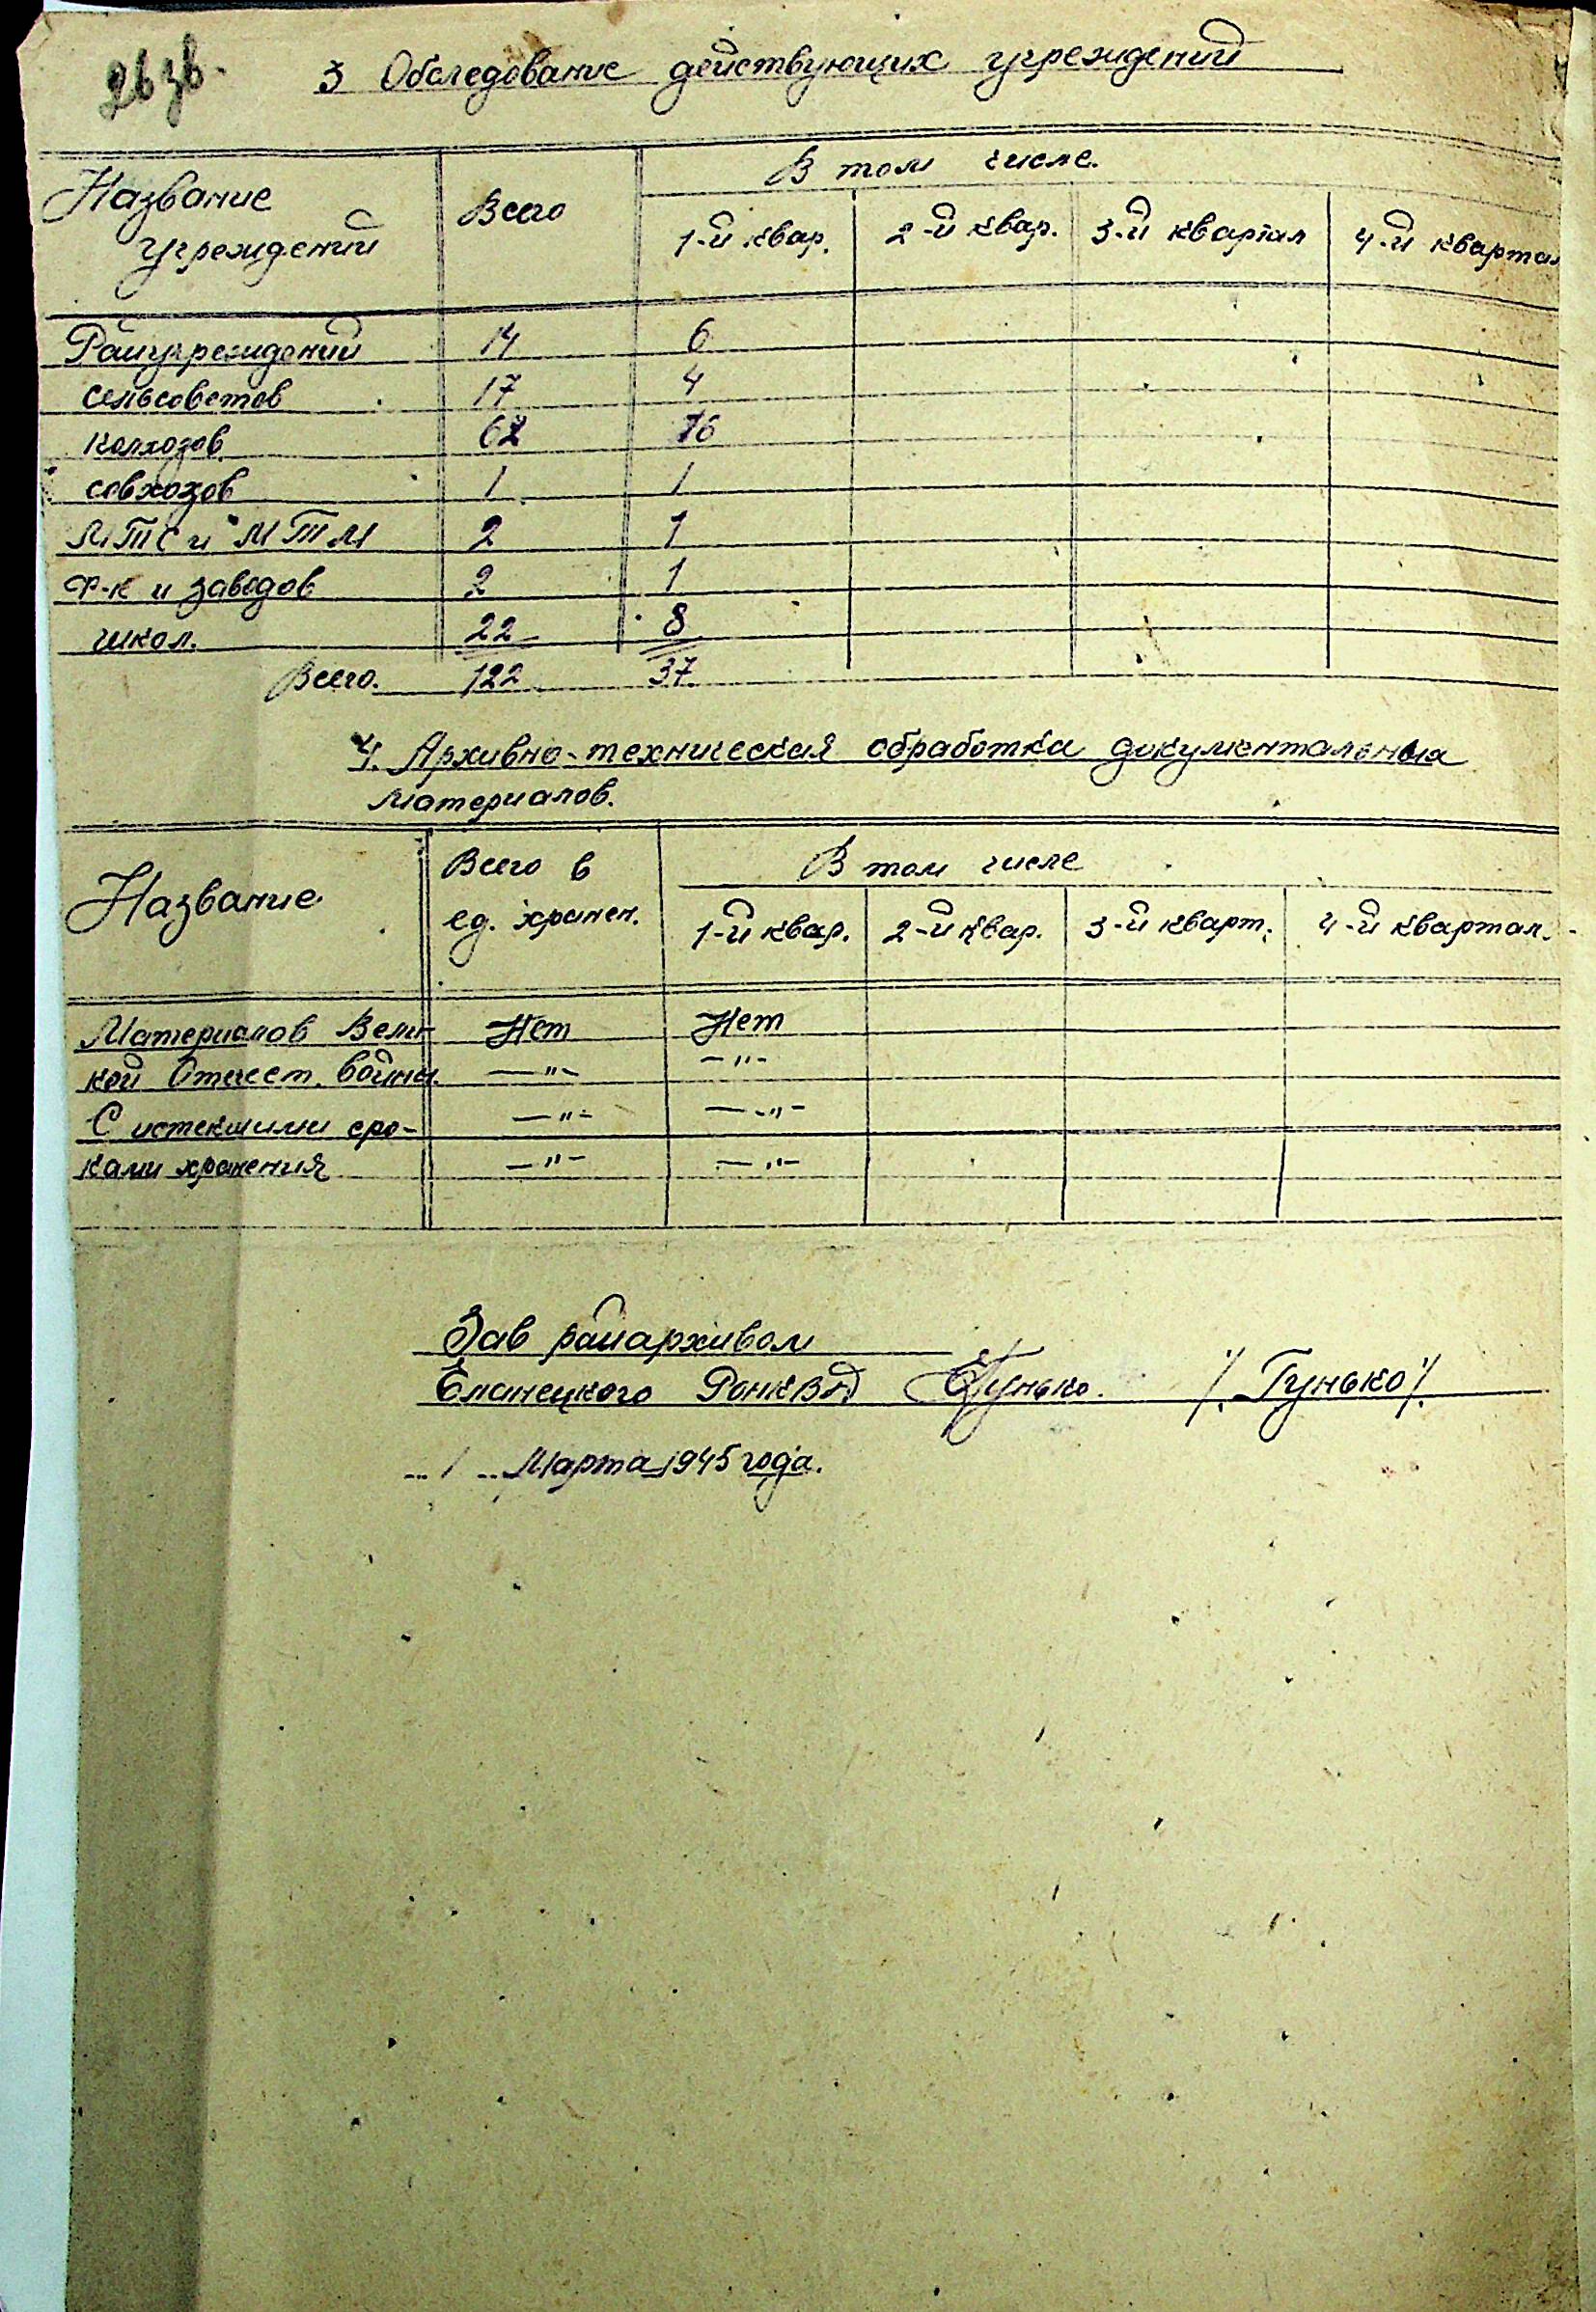 26 зв.
3 Обследование действующих учреждений
Название учреждений Всего В том числе.
1-й квар. 2-й квар. 3-й квартал 4-й квартал
Райучреждений 14 6
сельсоветов 17 4
колхозов 62 16
совхозов 1 1
МТС и МТМ 2 1
Ф-к и заводов 2 1
школ. 22 8
Всего. 122 37
4. Архивно-техническая обработка документальных
материалов.
Название Всего в ед. хранен. В том числе
1-й квар. 2-й квар. 3-й кварт. 4-й квартал.
Материалов Вели- Нет Нет
кой Отечест. войны — " — — " —
С истекшими сро- — " — — " —
ками хранения — " — — " —
Зав райархивом
Еланецкого РОНКВД Гунько. /. Гунько /.
" 1 " Марта 1945 года.